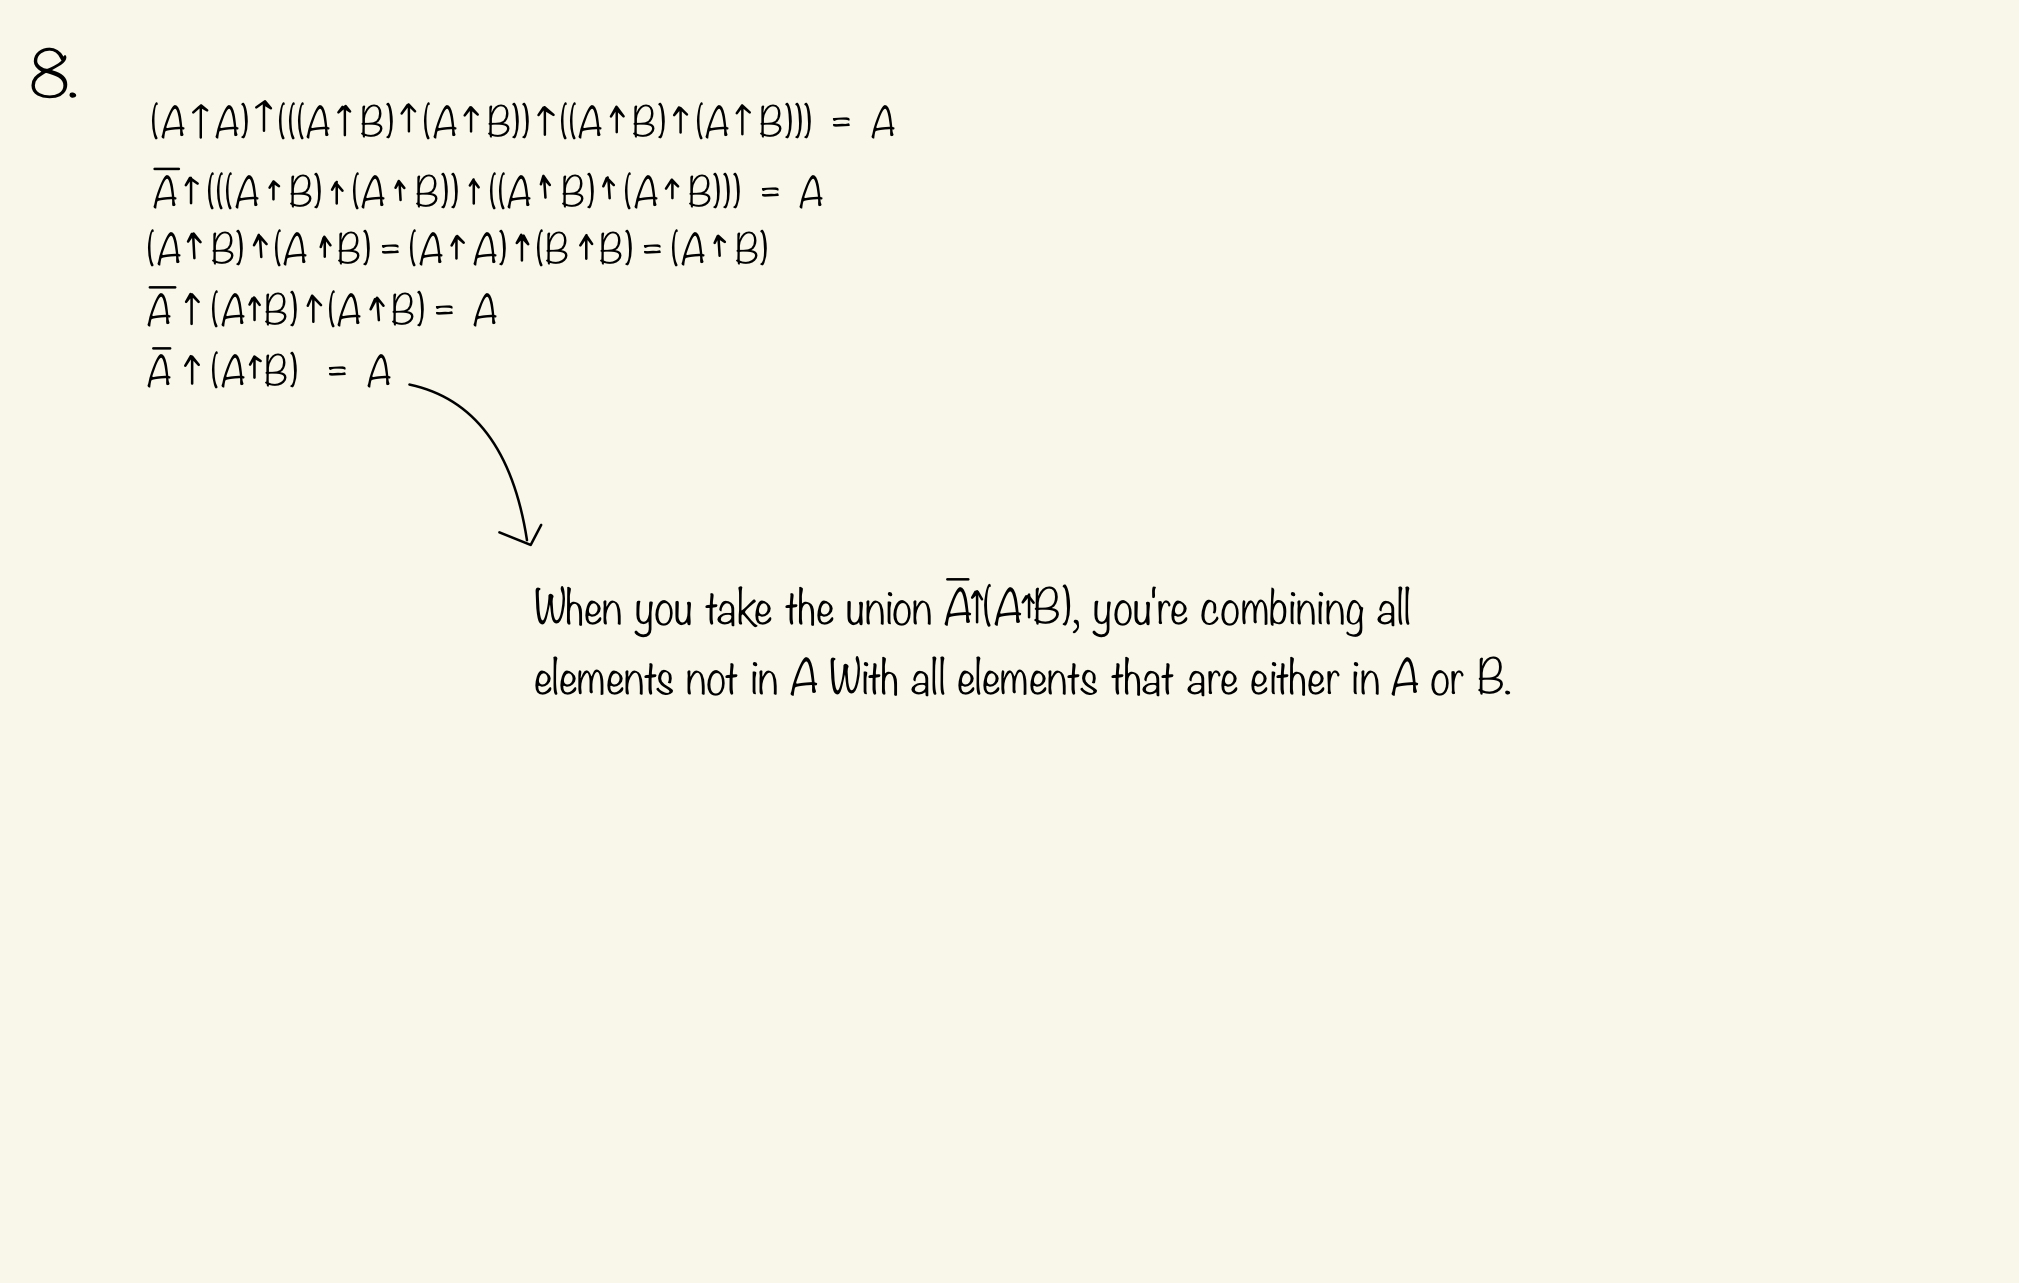 8.
(A↑A)↑(((A↑B)↑(A↑B))↑((A↑B)↑(A↑B))) = A
A̅↑(((A↑B)↑(A↑B))↑((A↑B)↑(A↑B))) = A
(A↑B)↑(A↑B)=(A↑A)↑(B↑B)=(A↑B)
A̅↑(A↑B)↑(A↑B)= A
A̅↑(A↑B) = A
When you take the union A̅↑(A↑B), you're combining all
elements not in A With all elements that are either in A or B.